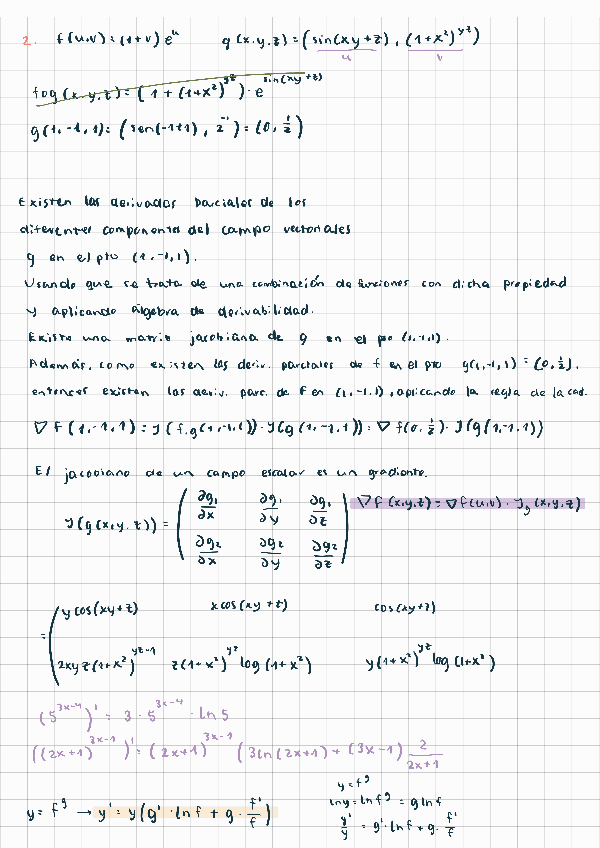 2. f(u,v)=(1+v)e^u g(x,y,z)=(sin(xy+z), (1+x²)^yz)
u v
fog(x,y,z)=(1+(1+x²)^yz)·e^sin(xy+z)
g(1,-1,1)=(sen(-1+1), 2^-1)=(0, 1/2)
Existen las derivadas parciales de los
diferentes componentes del campo vectoriales
g en el pto (1,-1,1).
Usando que se trata de una combinación de funciones con dicha propiedad
y aplicando álgebra de derivabilidad.
Existe una matriz jacobiana de g en el pto (1,-1,1).
Además, como existen las deriv. parciales de f en el pto g(1,-1,1)=(0,1/2),
entonces existen las deriv. parc. de F en (1,-1,1), aplicando la regla de la cad.
∇F(1,-1,1)=J(f,g(1,-1,1))·J(g(1,-1,1))=∇f(0,1/2)·J(g(1,-1,1))
El jacobiano de un campo escalar es un gradiente.
J(g(x,y,z)) = ( ∂g1/∂x ∂g1/∂y ∂g1/∂z ∂g2/∂x ∂g2/∂y ∂g2/∂z ) ∇F(x,y,z)=∇f(u,v)·Jg(x,y,z)
= ( y cos(xy+z) x cos(xy+z) cos(xy+z)
2xyz(1+x²)^yz-1 z(1+x²)^yz log(1+x²) y(1+x²)^yz log(1+x²)
(5^3x-4)' = 3·5^3x-4·ln5
((2x+1)^3x-1)' = (2x+1)^3x-1 (3ln(2x+1)+(3x-1) 2/2x+1
y=f^g → y'=y(g'·lnf+g·f'/f)
y=f^g
lny=lnf^g=glnf
y'/y=g'·lnf+g·f'/f